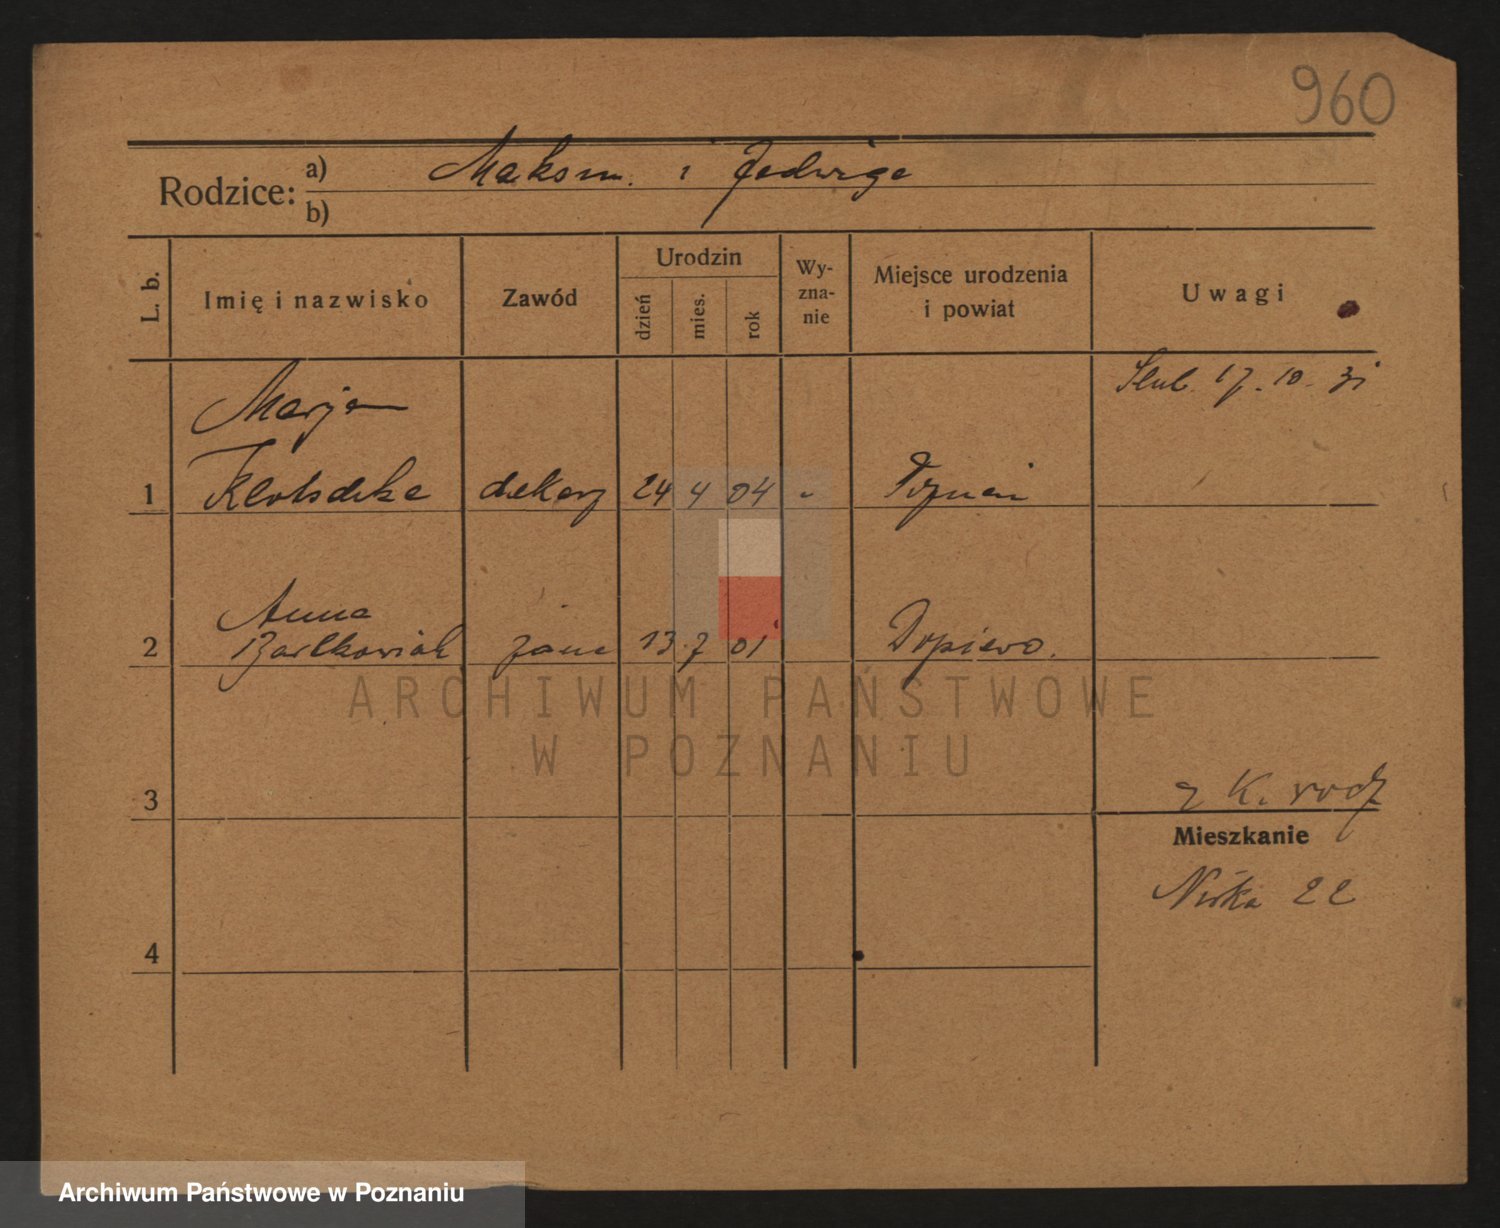 960
Rodzice: a) Maksm. i Jadwiga
b)
L. b. Imię i nazwisko Zawód Urodzin dzień mies. rok Wy-zna-nie Miejsce urodzenia i powiat Uwagi
Ślub. 17. 10. 31
Marjan
1 24 4 04 Poznań
Anna
2 Bartkowiak żona 13 7 01 Dopiewo.
ARCHIWUM PAŃSTWOWE
W POZNANIU
3 z K. rodz
Mieszkanie
22
4
Archiwum Państwowe w Poznaniu